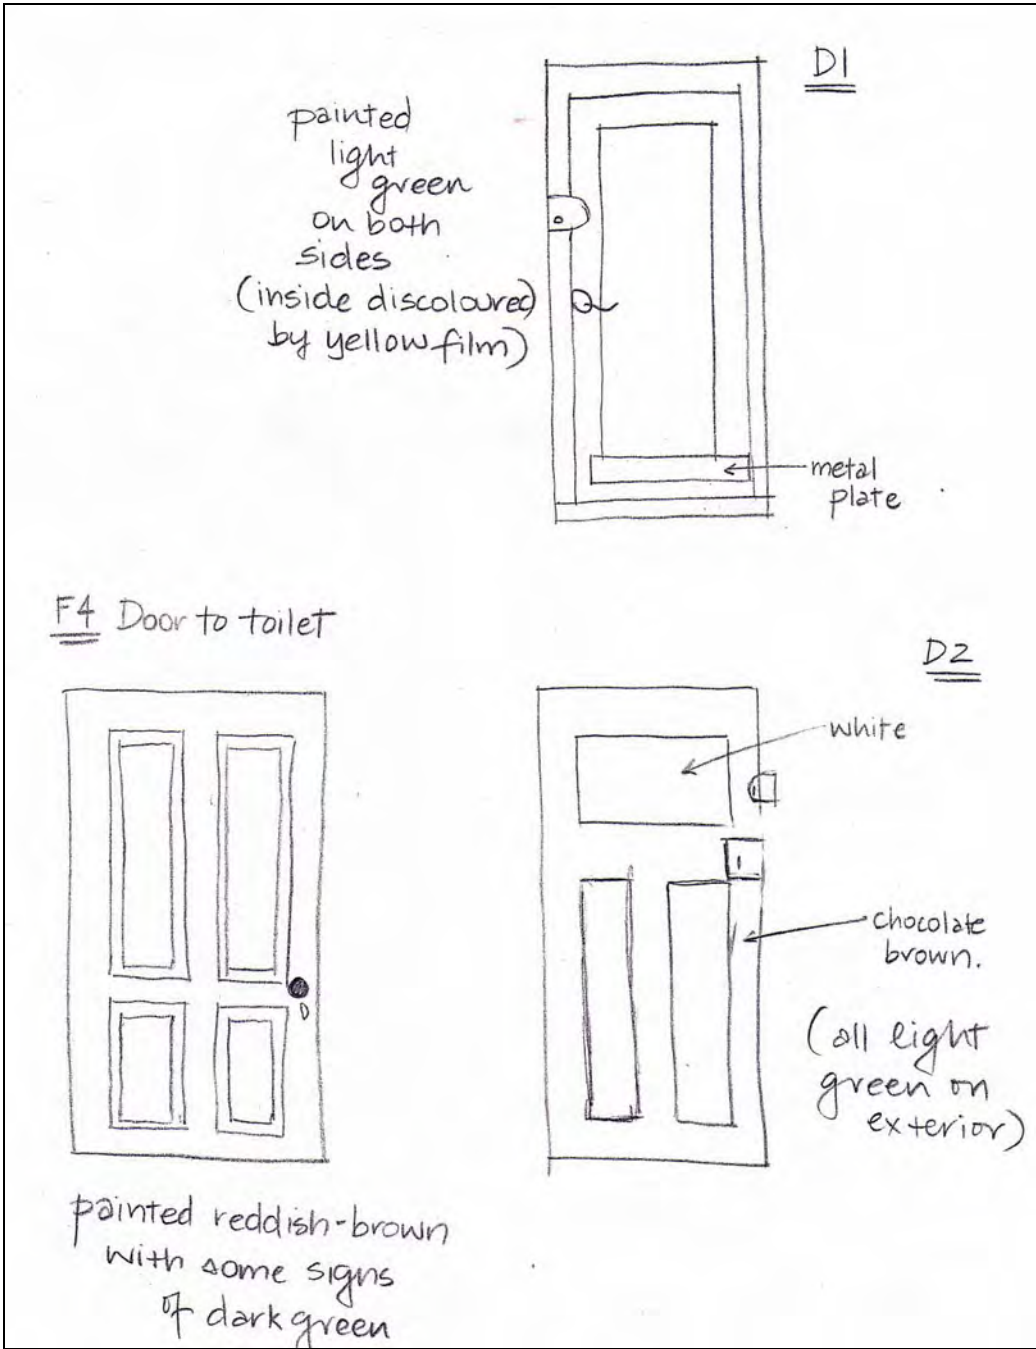 D1
painted
light
green
on both
sides
(inside discoloured
by yellow film)
metal
plate
F4 Door to toilet
D2
white
chocolate
brown.
(all light
green on
exterior)
painted reddish-brown
with some signs
of dark green